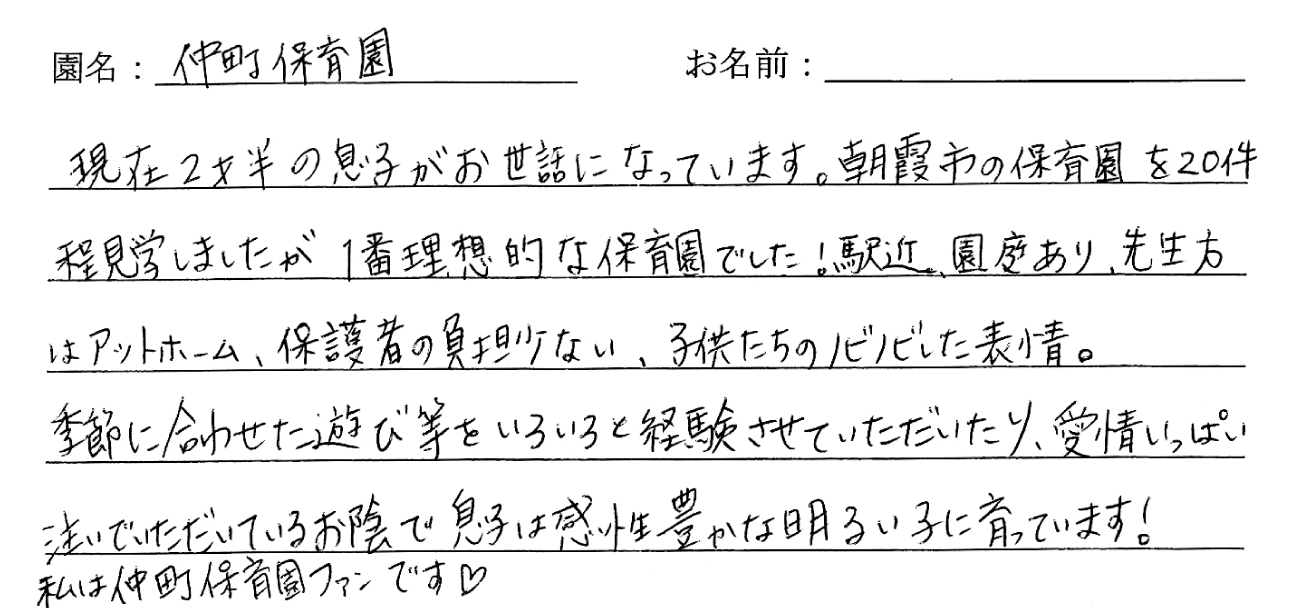 園名：仲町保育園 お名前：
現在2才半の息子がお世話になっています。朝霞市の保育園を20件
程見学しましたが1番理想的な保育園でした！駅近、園庭あり、先生方
はアットホーム、保護者の負担少ない、子供たちのノビノビした表情。
季節に合わせた遊び等をいろいろと経験させていただいたり、愛情いっぱい
注いでいただいているお陰で息子は感性豊かな明るい子に育っています！
私は仲町保育園ファンです♡